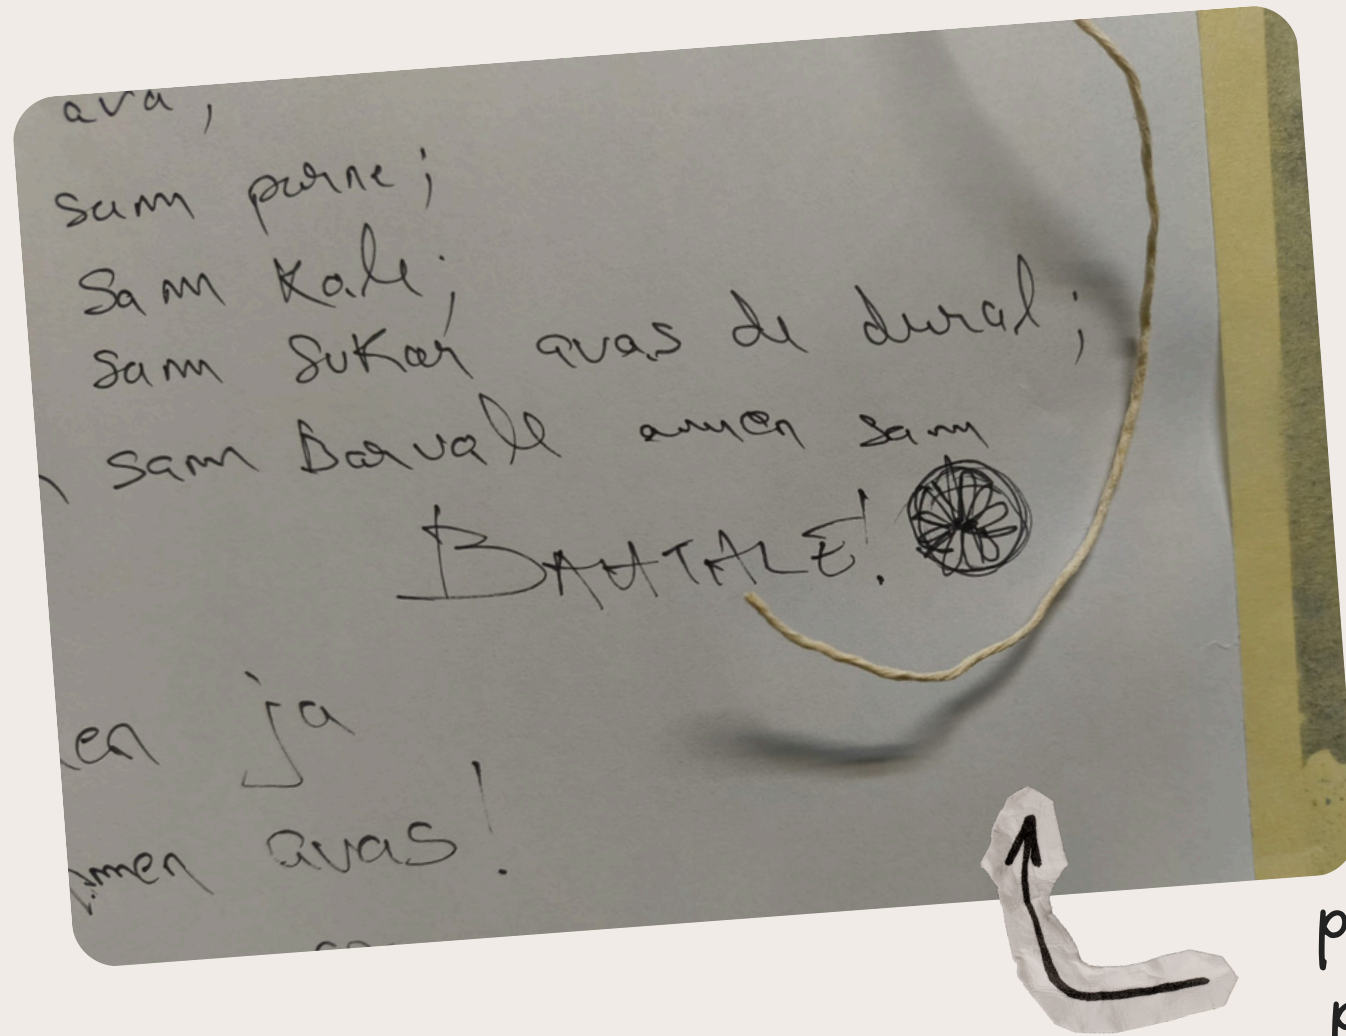 ava;
sam parne;
Sam Kale;
sam Sukar avas de dural;
sam Barvale amen sam
BAHTALE!
en ja
amen avas!